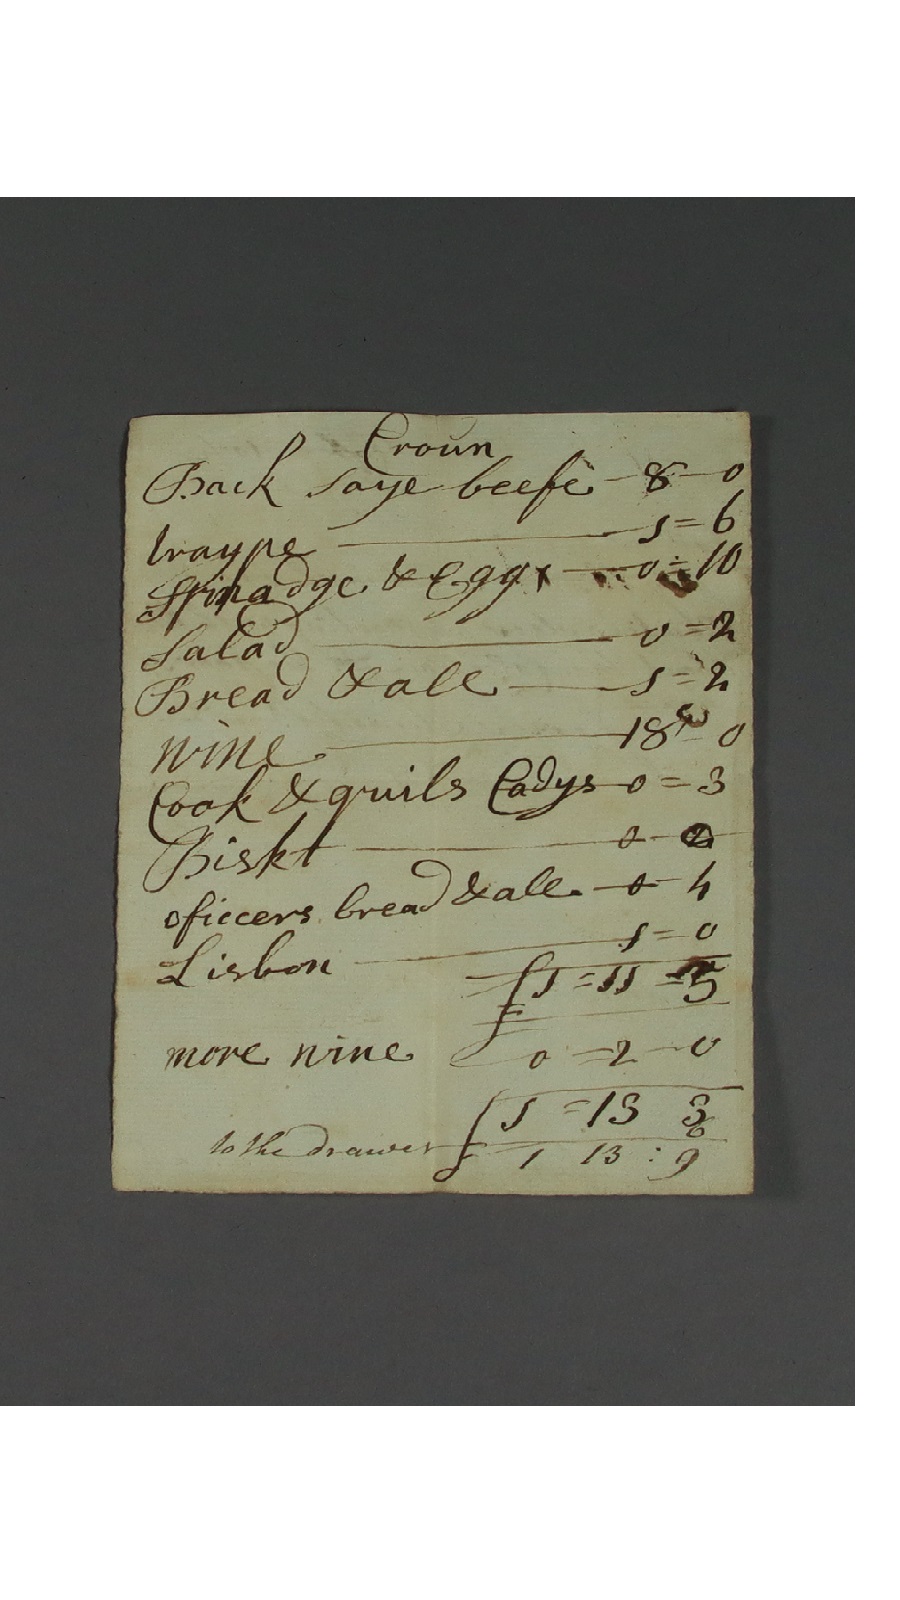 Croun
Back saye beefe 8 0
traype 1 = 6
Spinadge & Eggs 0 = 10
Salad 0 = 2
Bread & ale 1 = 2
wine 18s 0
Cook & quils Cadys 0 = 3
Biskt 0 2
oficcers bread & ale 0 4
Lisbon 1 = 0
£1 = 11 = 5
more wine 0 = 2 0
£1 = 13 3
to the drawer 6
£ 1 13 : 9